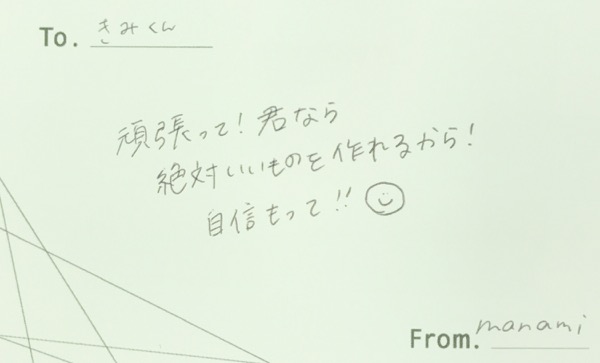 To. きみくん
頑張って!君なら
絶対いいものを作れるから!
自信もって!!
From. manami